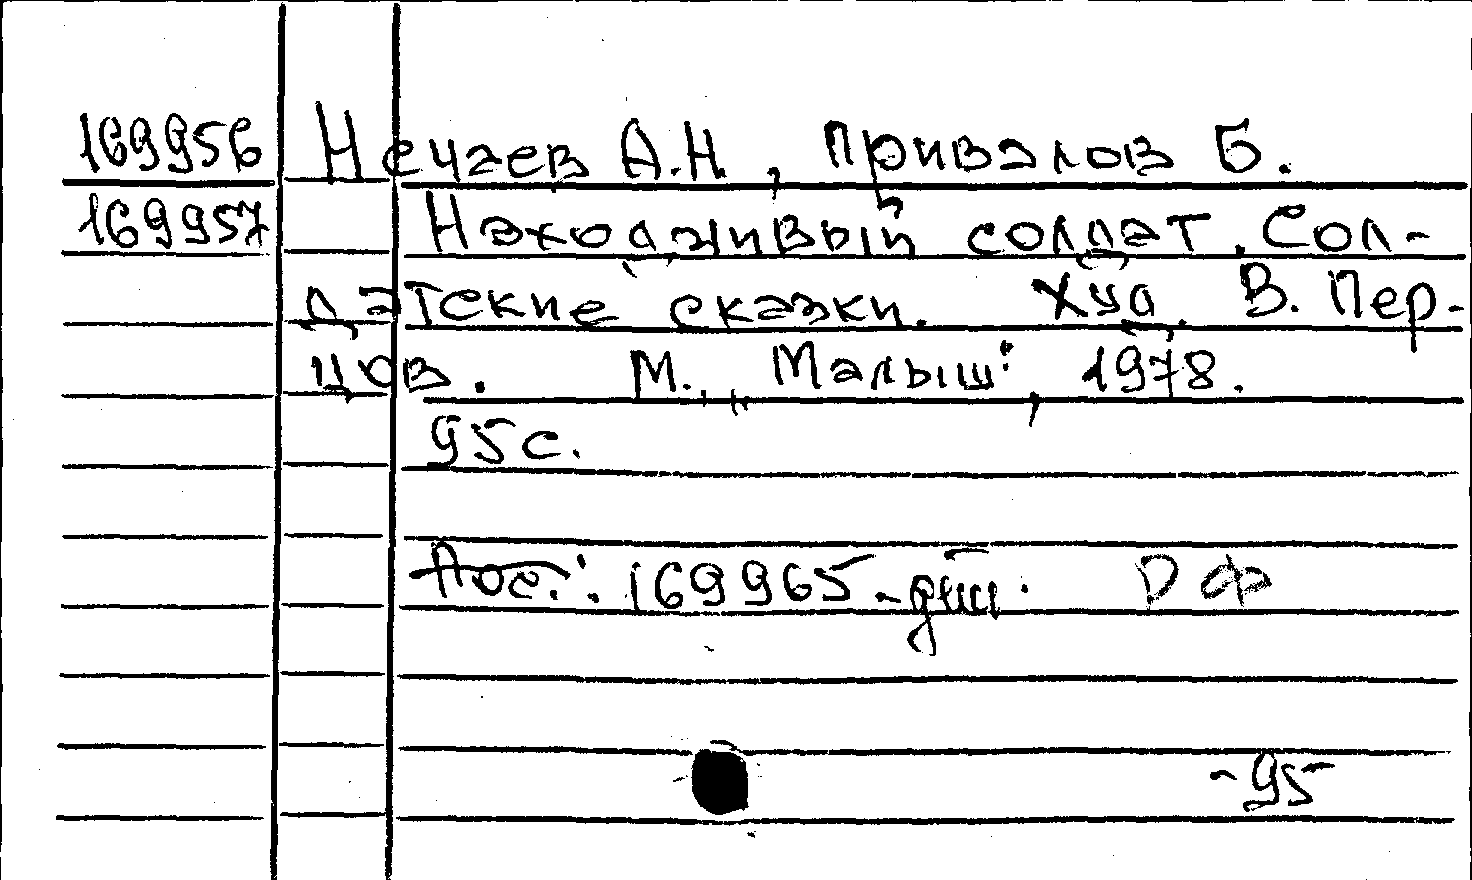 169956 Нечаев А.Н., Привалов Б.
169957 Находчивый солдат. Сол-
датские сказки. Худ. В. Пер-
цов. М., "Малыш", 1978.
95 с.
169965-
-95